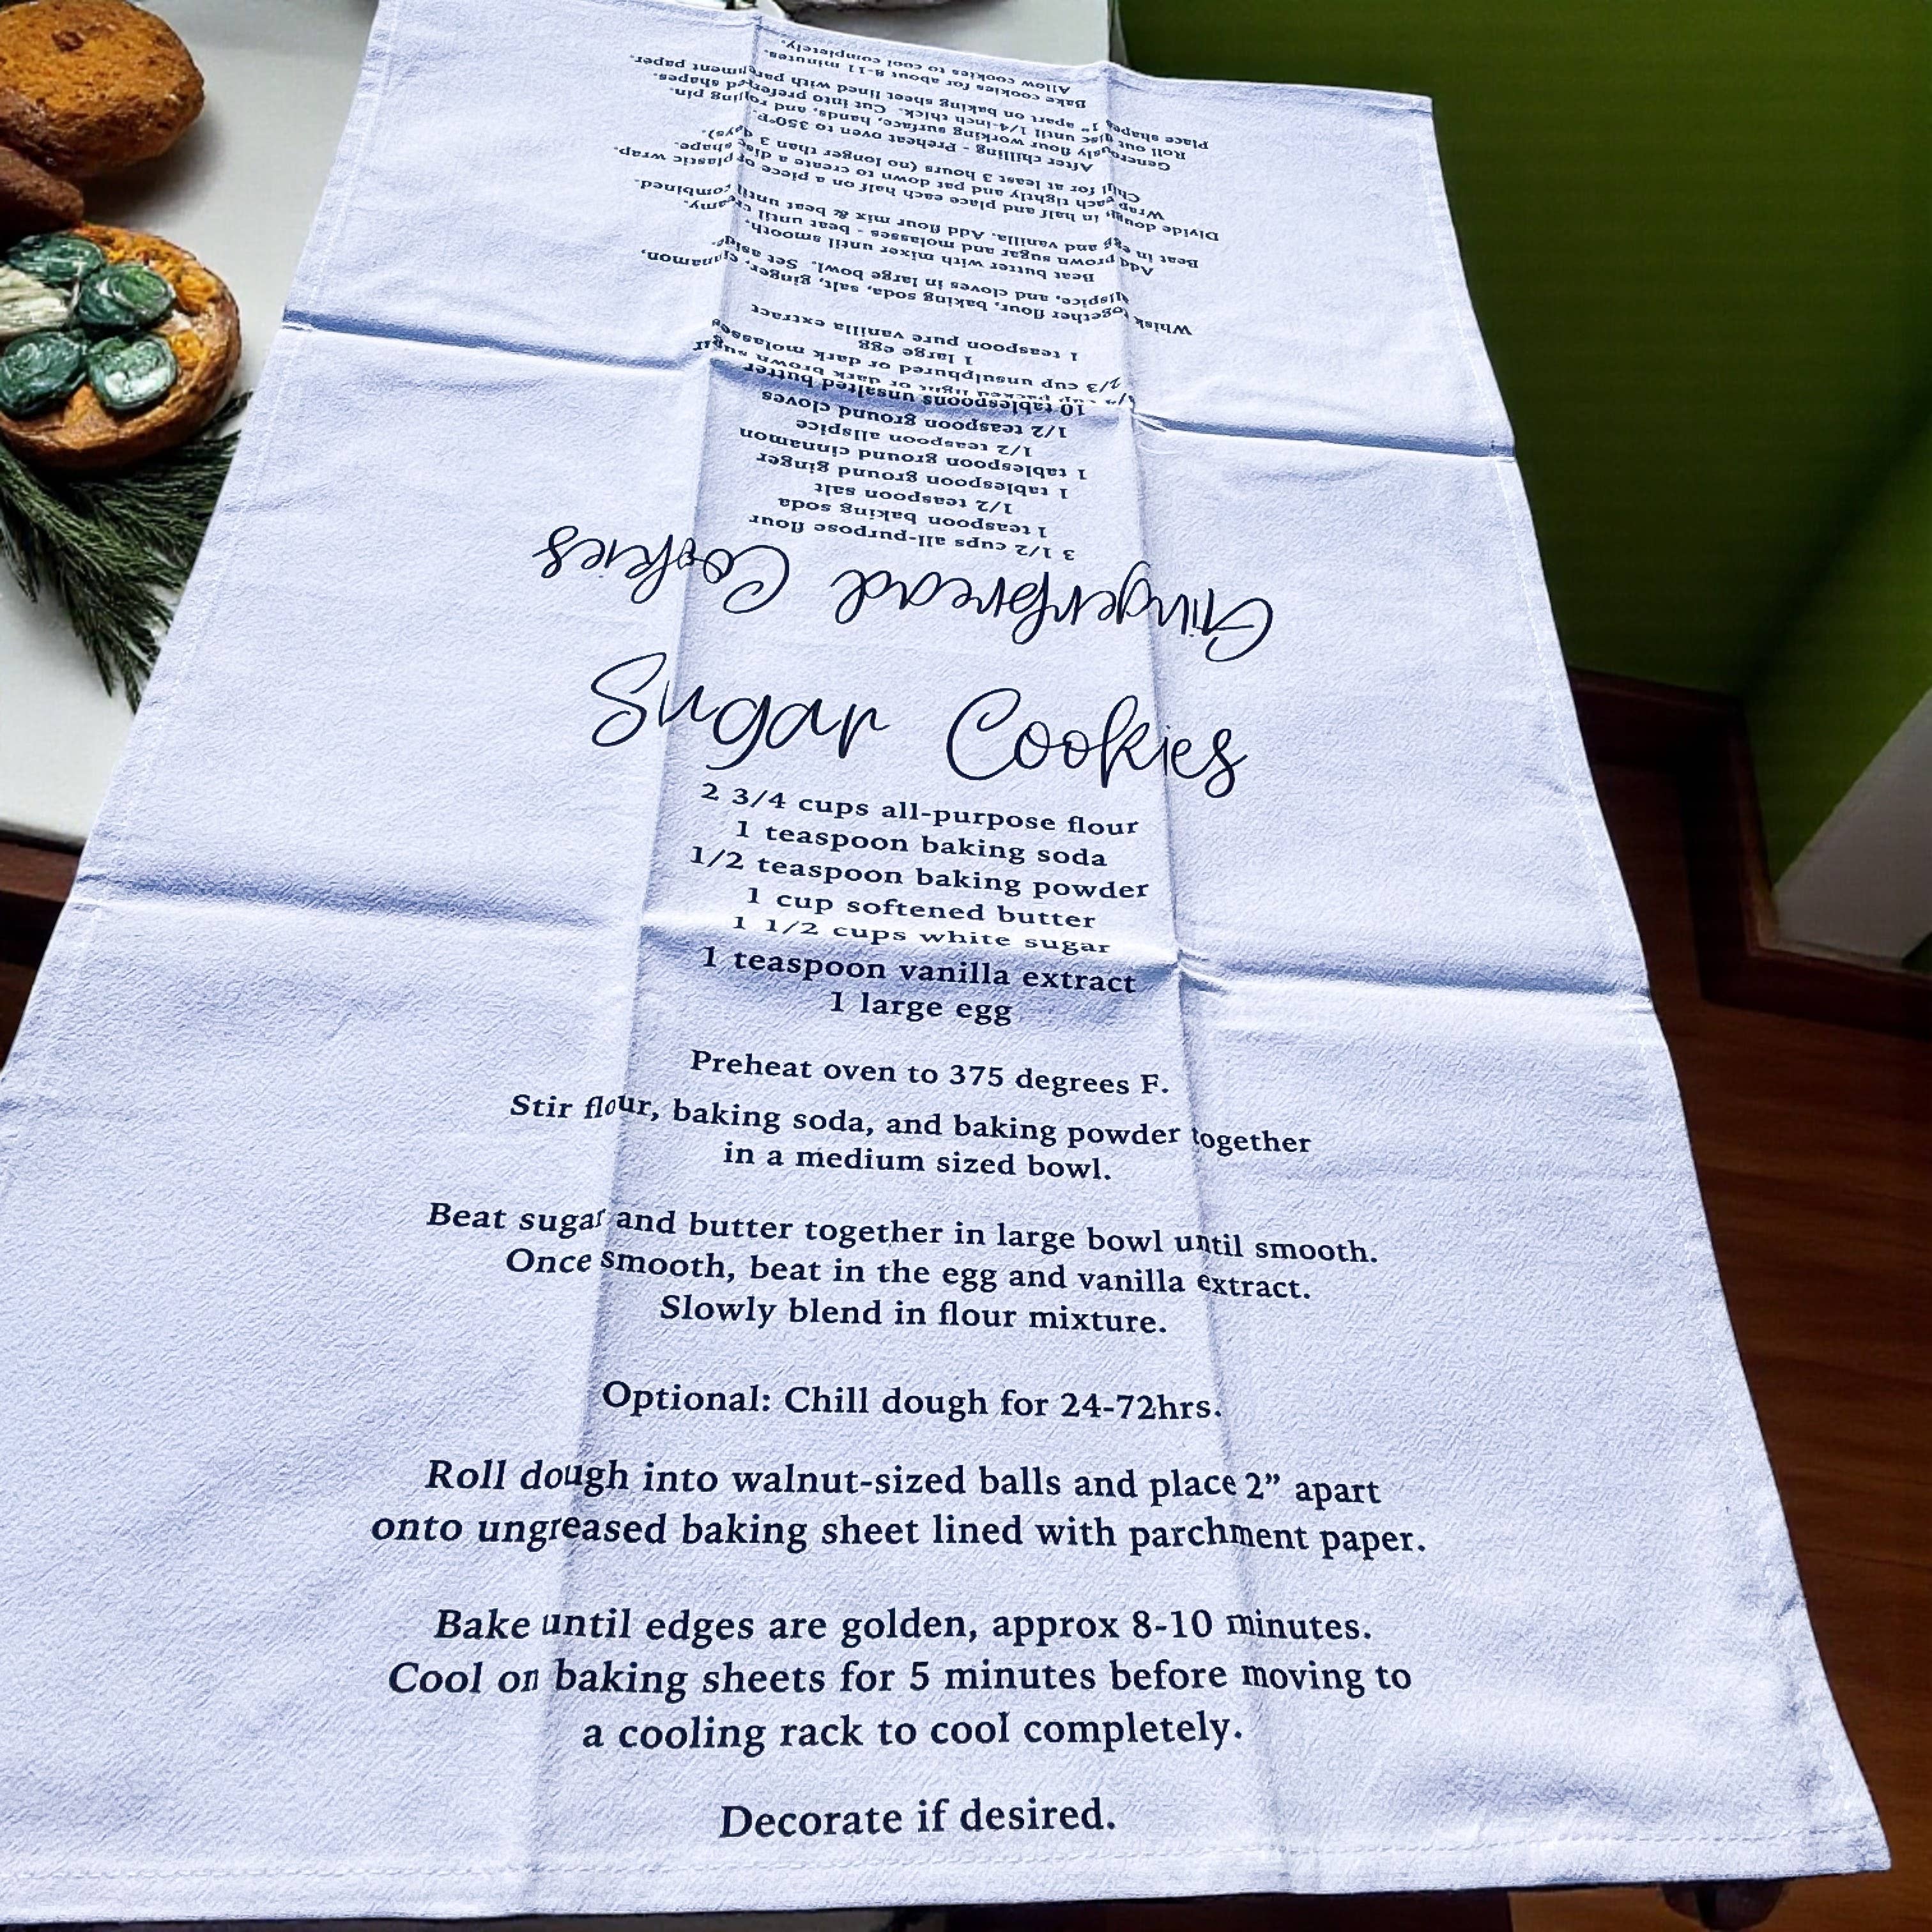 Sugar Cookies
2 3/4 cups all-purpose flour
1 teaspoon baking soda
1/2 teaspoon baking powder
1 cup softened butter
1 1/2 cups white sugar
1 teaspoon vanilla extract
1 large egg
Preheat oven to 375 degrees F.
Stir flour, baking soda, and baking powder together
in a medium sized bowl.
Beat sugar and butter together in large bowl until smooth.
Once smooth, beat in the egg and vanilla extract.
Slowly blend in flour mixture.
Optional: Chill dough for 24-72hrs.
Roll dough into walnut-sized balls and place 2” apart
onto ungreased baking sheet lined with parchment paper.
Bake until edges are golden, approx 8-10 minutes.
Cool on baking sheets for 5 minutes before moving to
a cooling rack to cool completely.
Decorate if desired.
Gingerbread Cookies
3 1/2 cups all-purpose flour
1 teaspoon baking soda
1/2 teaspoon salt
1 tablespoon ground ginger
1 tablespoon ground cinnamon
1/2 teaspoon allspice
1/2 teaspoon ground cloves
10 tablespoons unsalted butter
cup packed light or dark brown sugar
2/3 cup unsulphured or dark molasses
1 large egg
1 teaspoon pure vanilla extract
Whisk together flour, baking soda, salt, ginger, cinnamon,
allspice, and cloves in large bowl. Set aside.
Beat butter with mixer until smooth.
Add brown sugar and molasses - beat until creamy.
Beat in egg and vanilla. Add flour mix & beat until combined.
Divide dough in half and place each half on a piece of plastic wrap.
Wrap each tightly and pat down to create a disc shape.
Chill for at least 3 hours (no longer than 3 days).
After chilling - Preheat oven to 350°F.
Generously flour working surface, hands, and rolling pin.
Roll out disc until 1/4-inch thick. Cut into preferred shapes.
Place shapes 1" apart on baking sheet lined with parchment paper.
Bake cookies for about 8-11 minutes.
Allow cookies to cool completely.